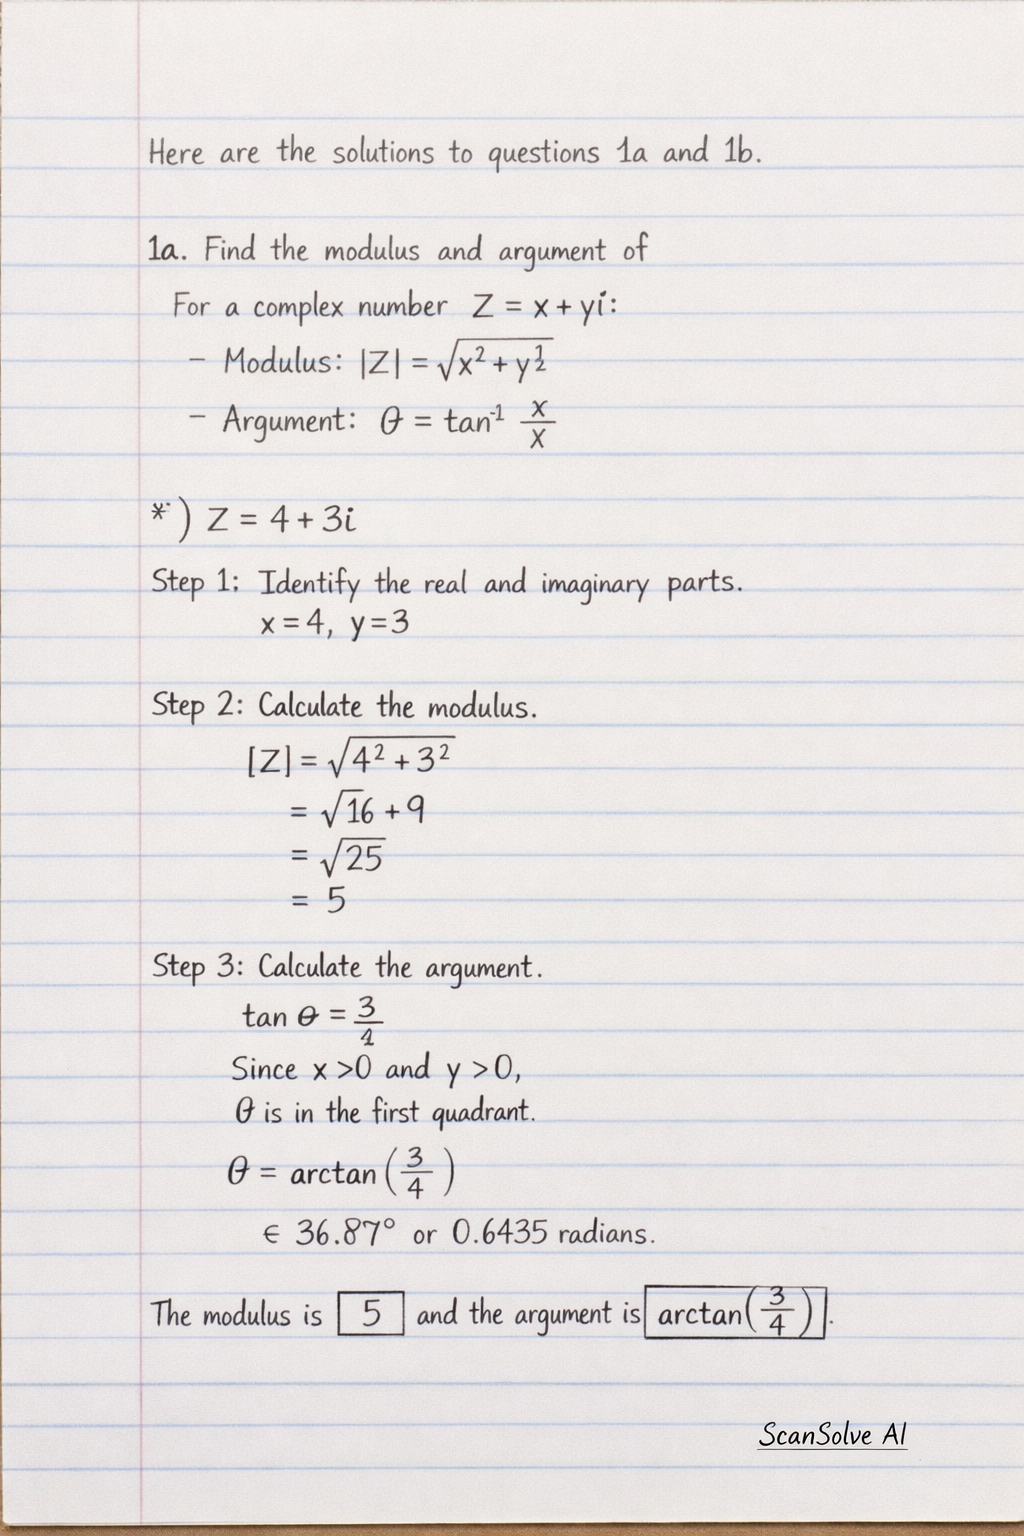 Here are the solutions to questions 1a and 1b.
1a. Find the modulus and argument of
For a complex number Z = x + yi:
– Modulus: |Z| = √(x² + y½)
– Argument: θ = tan⁻¹ x/x
*) Z = 4 + 3i
Step 1: Identify the real and imaginary parts.
x = 4, y = 3
Step 2: Calculate the modulus.
[Z] = √(4² + 3²)
= √16 + 9
= √25
= 5
Step 3: Calculate the argument.
tan θ = 3/4
Since x >0 and y >0,
θ is in the first quadrant.
θ = arctan (3/4)
∈ 36.87° or 0.6435 radians.
The modulus is 5 and the argument is arctan(3/4).
ScanSolve AI